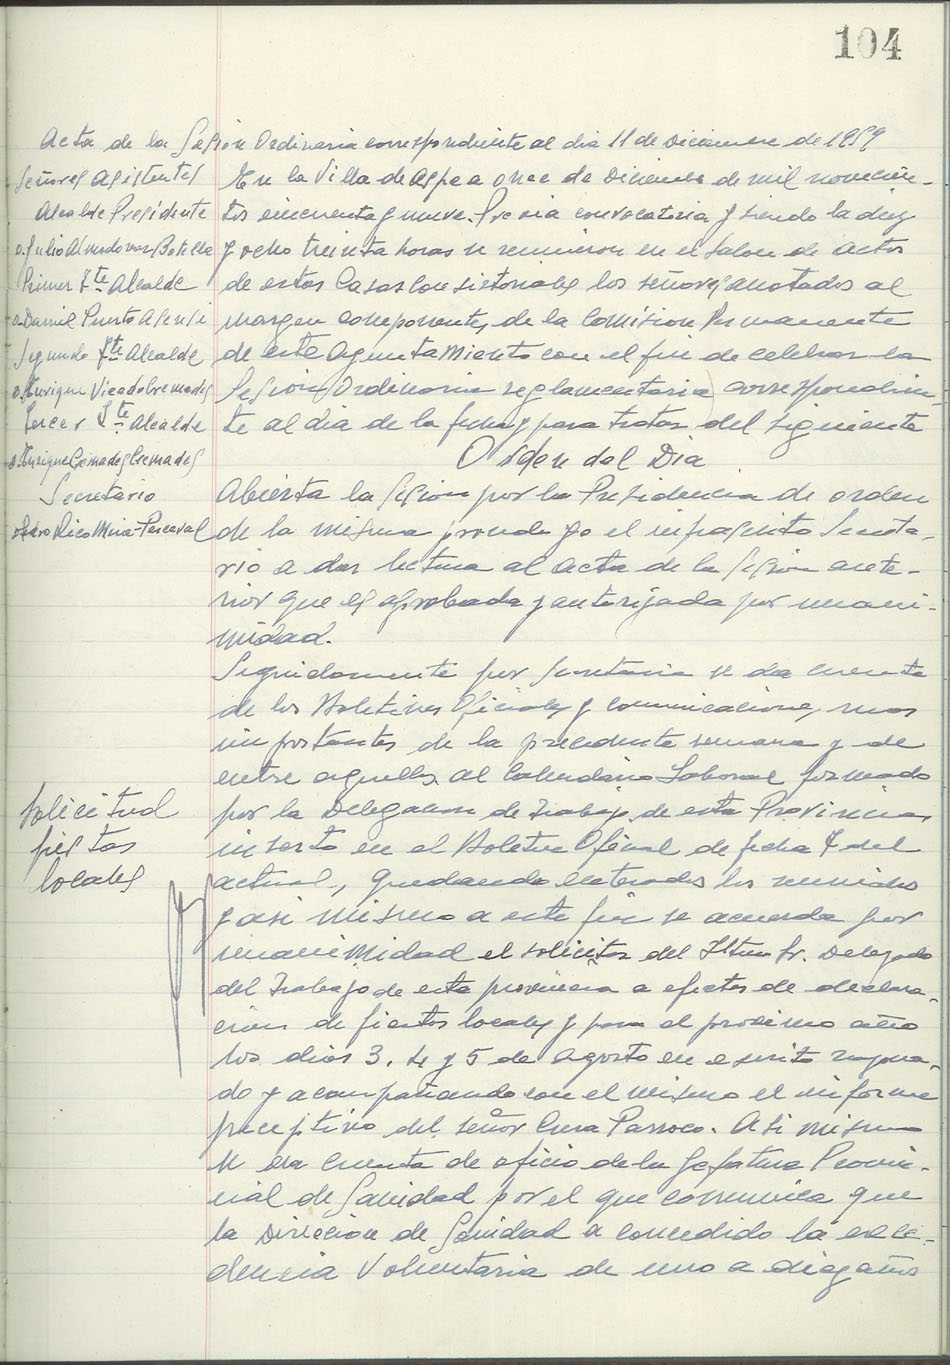 104
Acta de la Sesión Ordinaria correspondiente al dia 11 de Diciembre de 1959
Señores Asistentes
Alcalde Presidente
D. Julio Almodovar Botella
Primer Tte Alcalde
D. Daniel Puerto Asensi
Segundo Tte Alcalde
D. Enrique Vicedo Cremades
Tercer Tte Alcalde
D. Enrique Cremades Cremades
Secretario
D. Pedro Rico Mira-Perceval
En la Villa de Aspe a once de Diciembre de mil novecien-
tos cincuenta y nueve. Previa convocatoria y siendo la diez
y ocho treinta horas se reunieron en el Salon de actos
de estas Casas Consistoriales los señores anotados al
margen componentes de la Comision Permanente
de este Ayuntamiento con el fin de celebrar la
Sesion Ordinaria reglamentaria correspondien-
te al dia de la fecha y para tratar del siguiente
Orden del Dia
Abierta la Sesion por la Presidencia de orden
de la misma procedo yo el infrascrito Secreta-
rio a dar lectura al acta de la Sesion ante-
rior que es aprobada y autorizada por unani-
midad.
Seguidamente por Secretaria se da cuenta
de los Boletines Oficiales y comunicaciones mas
importantes de la precedente semana y de
entre aquellos al Calendario Laboral formado
por la Delegacion de Trabajo de esta Provincia
inserto en el Boletin Oficial de fecha 7 del
actual, quedando enterados los reunidos
y asi mismo a este fin se acuerda por
unanimidad el solicitar del Iltmo Sr. Delegado
del Trabajo de esta provincia a efectos de declara-
cion de fiestas locales y para el proximo año
los dias 3, 4 y 5 de Agosto en escrito razona-
do y acompañando con el mismo el informe
preceptivo del señor Cura Parroco. Asi mismo
se da cuenta de oficio de la Jefatura Provin-
cial de Sanidad por el que comunica que
la Direccion de Sanidad a concedido la exce-
dencia Voluntaria de uno a diez años
Solicitud
fiestas
locales